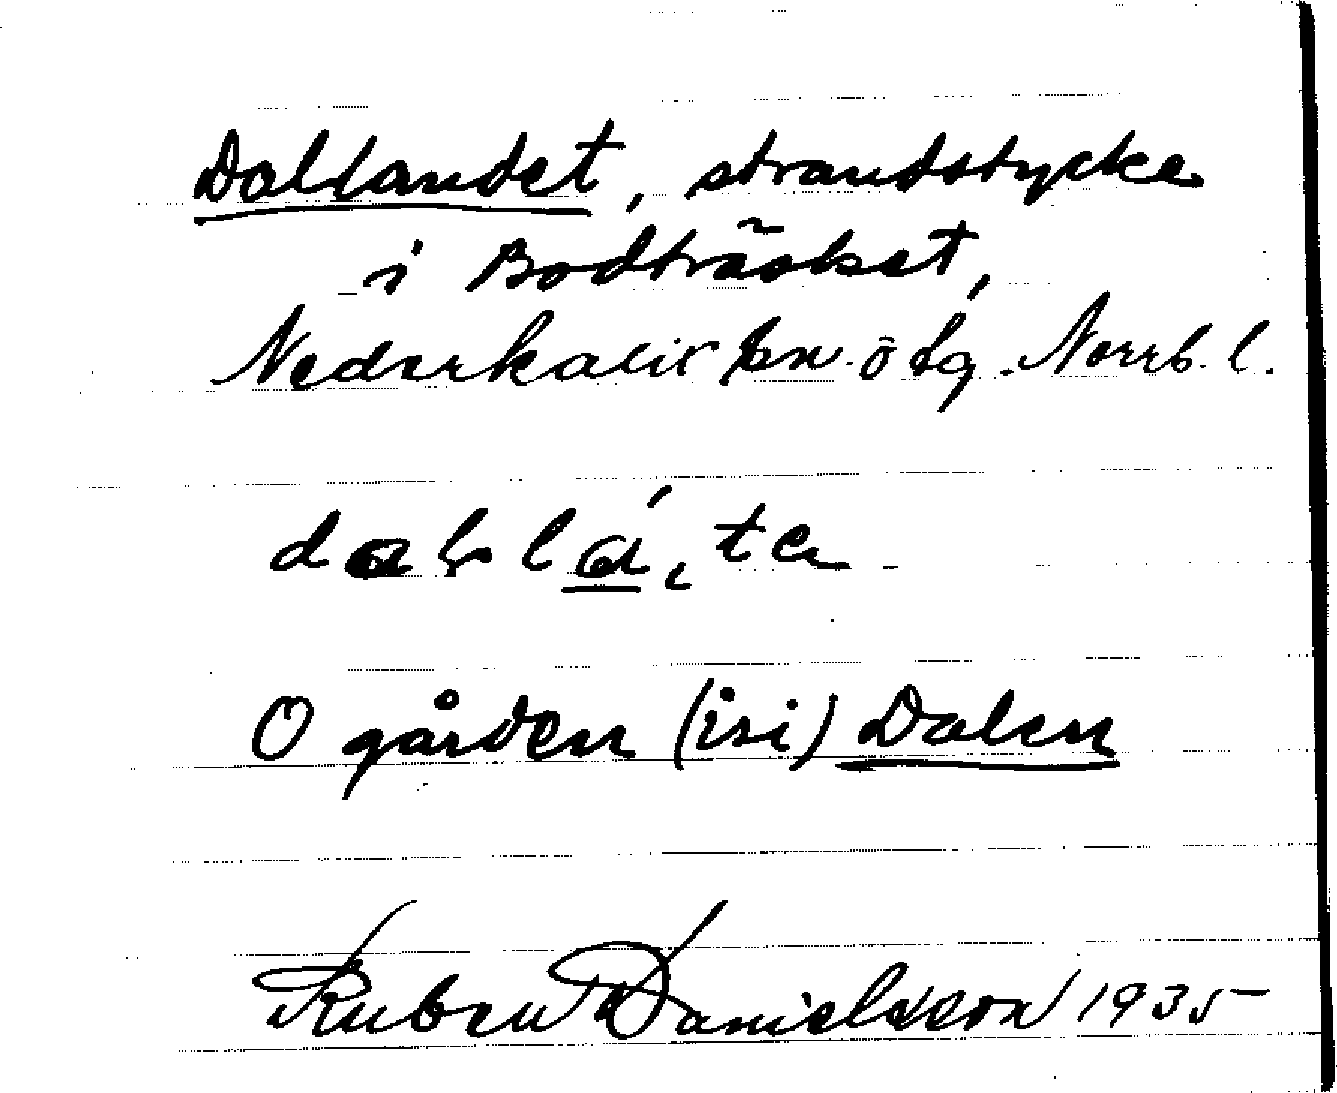 Dallandet, strandstycke
i Bodträsket,
Nederkalix sn. ö tg. Norrb. l.
O gården (isi) Dalen
Ruben Danielsson 1935